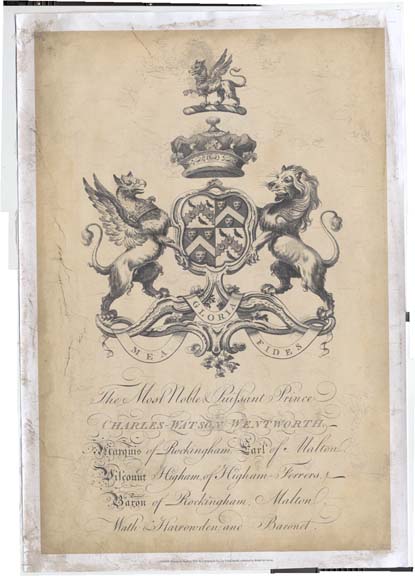 MEA GLORIA FIDES
The Most Noble & Puissant Prince
CHARLES-WATSON-WENTWORTH,
Marquis of Rockingham, Earl of Malton
Viscount Higham, of Higham-Ferrers,
Baron of Rockingham, Malton
Wath & Harrowden and Baronet.